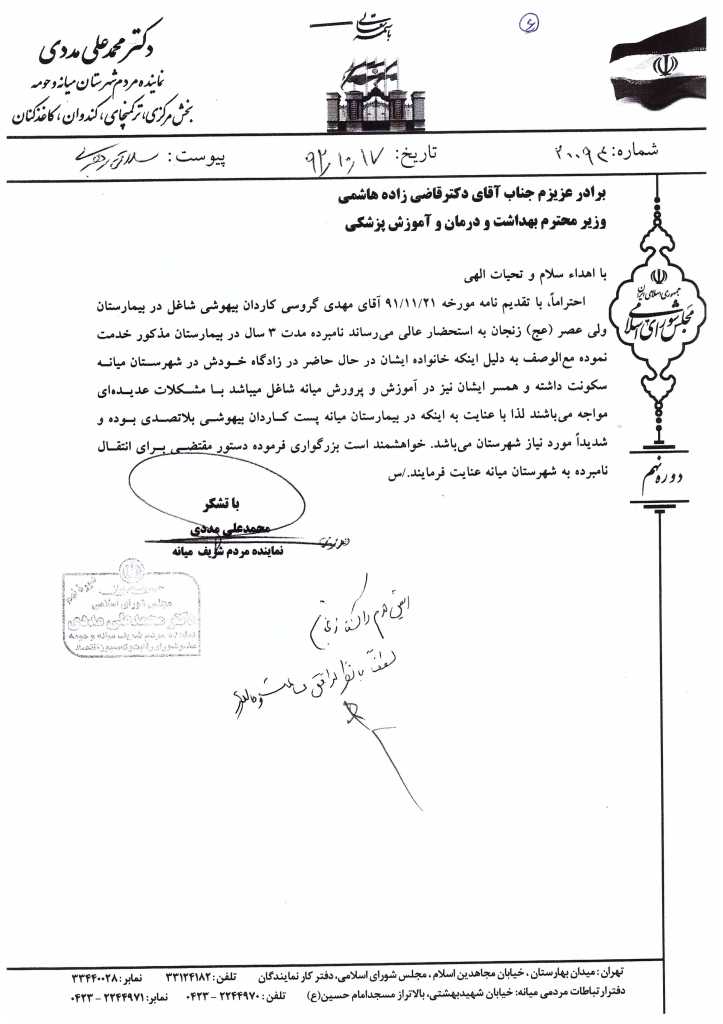 باسمه تعالی
دکتر محمدعلی مددی
نماینده مردم شهرستان میانه و حومه
بخش مرکزی، ترکمنچای، کندوان، کاغذکنان
شماره:
تاریخ: ۹۲/۱۰/۱۷
پیوست:
برادر عزیزم جناب آقای دکترقاضی زاده هاشمی
وزیر محترم بهداشت و درمان و آموزش پزشکی
جمهوری اسلامی ایران
مجلس شورای اسلامی
دوره نهم
با اهداء سلام و تحیات الهی
احتراماً، با تقدیم نامه مورخه ۹۱/۱۱/۲۱ آقای مهدی گروسی کاردان بیهوشی شاغل در بیمارستان
ولی عصر (عج) زنجان به استحضار عالی می‌رساند نامبرده مدت ۳ سال در بیمارستان مذکور خدمت
نموده مع‌الوصف به دلیل اینکه خانواده ایشان در حال حاضر در زادگاه خودش در شهرستان میانه
سکونت داشته و همسر ایشان نیز در آموزش و پرورش میانه شاغل میباشد با مشکلات عدیده‌ای
مواجه می‌باشند لذا با عنایت به اینکه در بیمارستان میانه پست کاردان بیهوشی بلاتصدی بوده و
شدیداً مورد نیاز شهرستان می‌باشد. خواهشمند است بزرگواری فرموده دستور مقتضی برای انتقال
نامبرده به شهرستان میانه عنایت فرمایند./س
با تشکر
محمدعلی مددی
نماینده مردم شریف میانه
مجلس شورای اسلامی
دکتر محمدعلی مددی
نماینده مردم شریف میانه و حومه
تهران: میدان بهارستان، خیابان مجاهدین اسلام، مجلس شورای اسلامی، دفتر کار نمایندگان تلفن: ۳۳۱۲۴۱۸۲ نمابر: ۳۳۴۴۰۰۲۸
دفترارتباطات مردمی میانه: خیابان شهیدبهشتی، بالاتراز مسجدامام حسین(ع) تلفن: ۲۲۴۴۹۷۰ - ۰۴۲۳ نمابر: ۲۲۴۴۹۷۱ - ۰۴۲۳